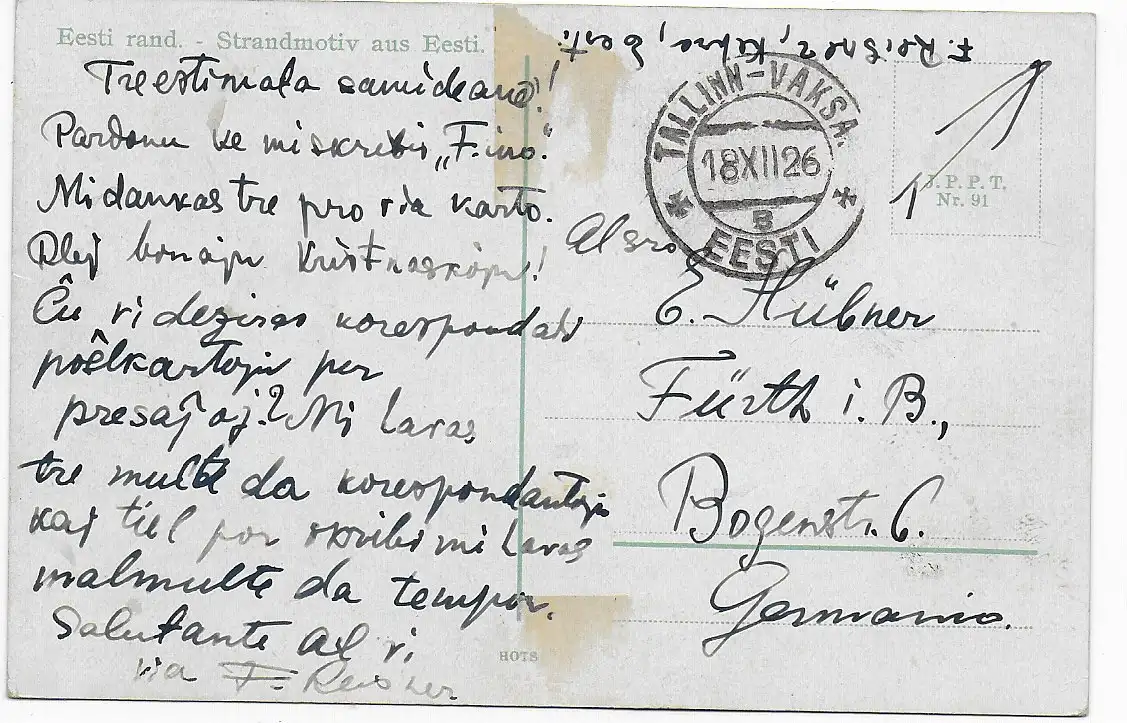 Eesti rand. - Strandmotiv aus Eesti.
F. Reisner, Kehra, Eesti.
Treestimata samideano!
Pardonu ke mi skribis „F-ino."
Mi dankas tre pro via karto.
Plej bonajn Kristnaskojn!
Ĉu vi deziras korespondadi
poŝtkartojn per
presaĵoj? Mi havas
tre multe da korespondantojn
kaj tiel por skribi mi havas
malmulte da tempon.
Salutante al vi
via F. Reisner
TALLINN-VAKSAL
18XII26
B
EESTI
J. P. P. T.
Nr. 91
Al sro
E. Hübner
Fürth i. B.,
Bogenstr. 6.
Germanio.
HOTS